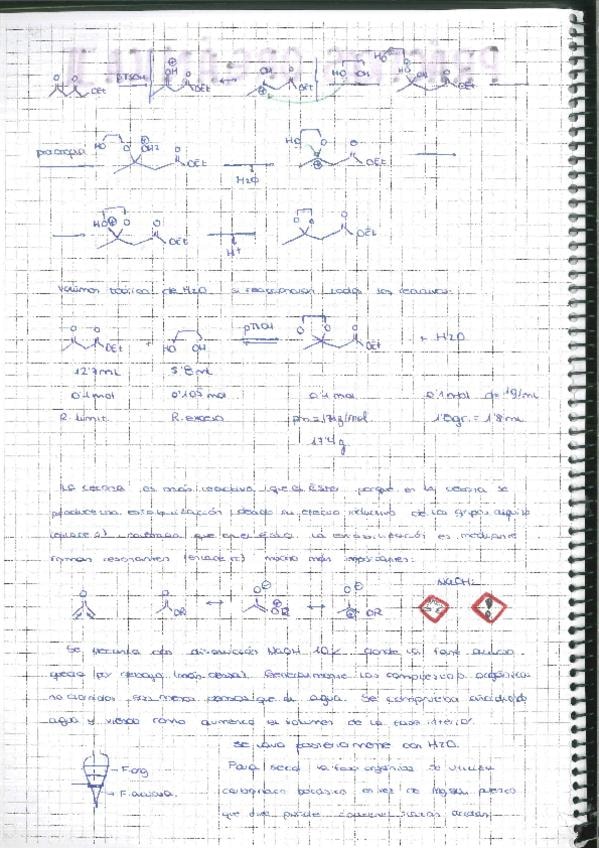 pTSOH
OEt OEt OEt OEt
HO OH
OEt OEt
H2O
OEt OEt
H+
Volumen teórico de H2O si reaccionaran todos los reactivos:
OEt + HO OH pTSOH OEt + H2O
12'7mL 5'8mL
0'1mol 0'105mol 0'1mol 0'1mol d=1g/mL
R. Limit. R. exceso pm=174g/mol 1'8gr. = 1'8mL
17'4g
La cetona es más reactiva que el éster porque en la cetona se
produce una estabilización debido al efecto inductivo de los grupos alquilo
(enlace σ) mientras que en el éster la estabilización es mediante
formas resonantes (enlace π) mucho más
NaOH
OR OR OR
Se con disolución NaOH 10% donde la fase acuosa
queda por debajo (más densa). Generalmente los compuestos orgánicos
no clorados son menos densos que el agua. Se comprueba añadiendo
agua y viendo como aumenta el volumen de la fase
Se lava posteriormente con H2O.
F. org
F. acuosa.
Para secar la fase orgánica se utiliza
carbonato potásico en vez de MgSO4 puesto
que éste puede contener trazas ácidas